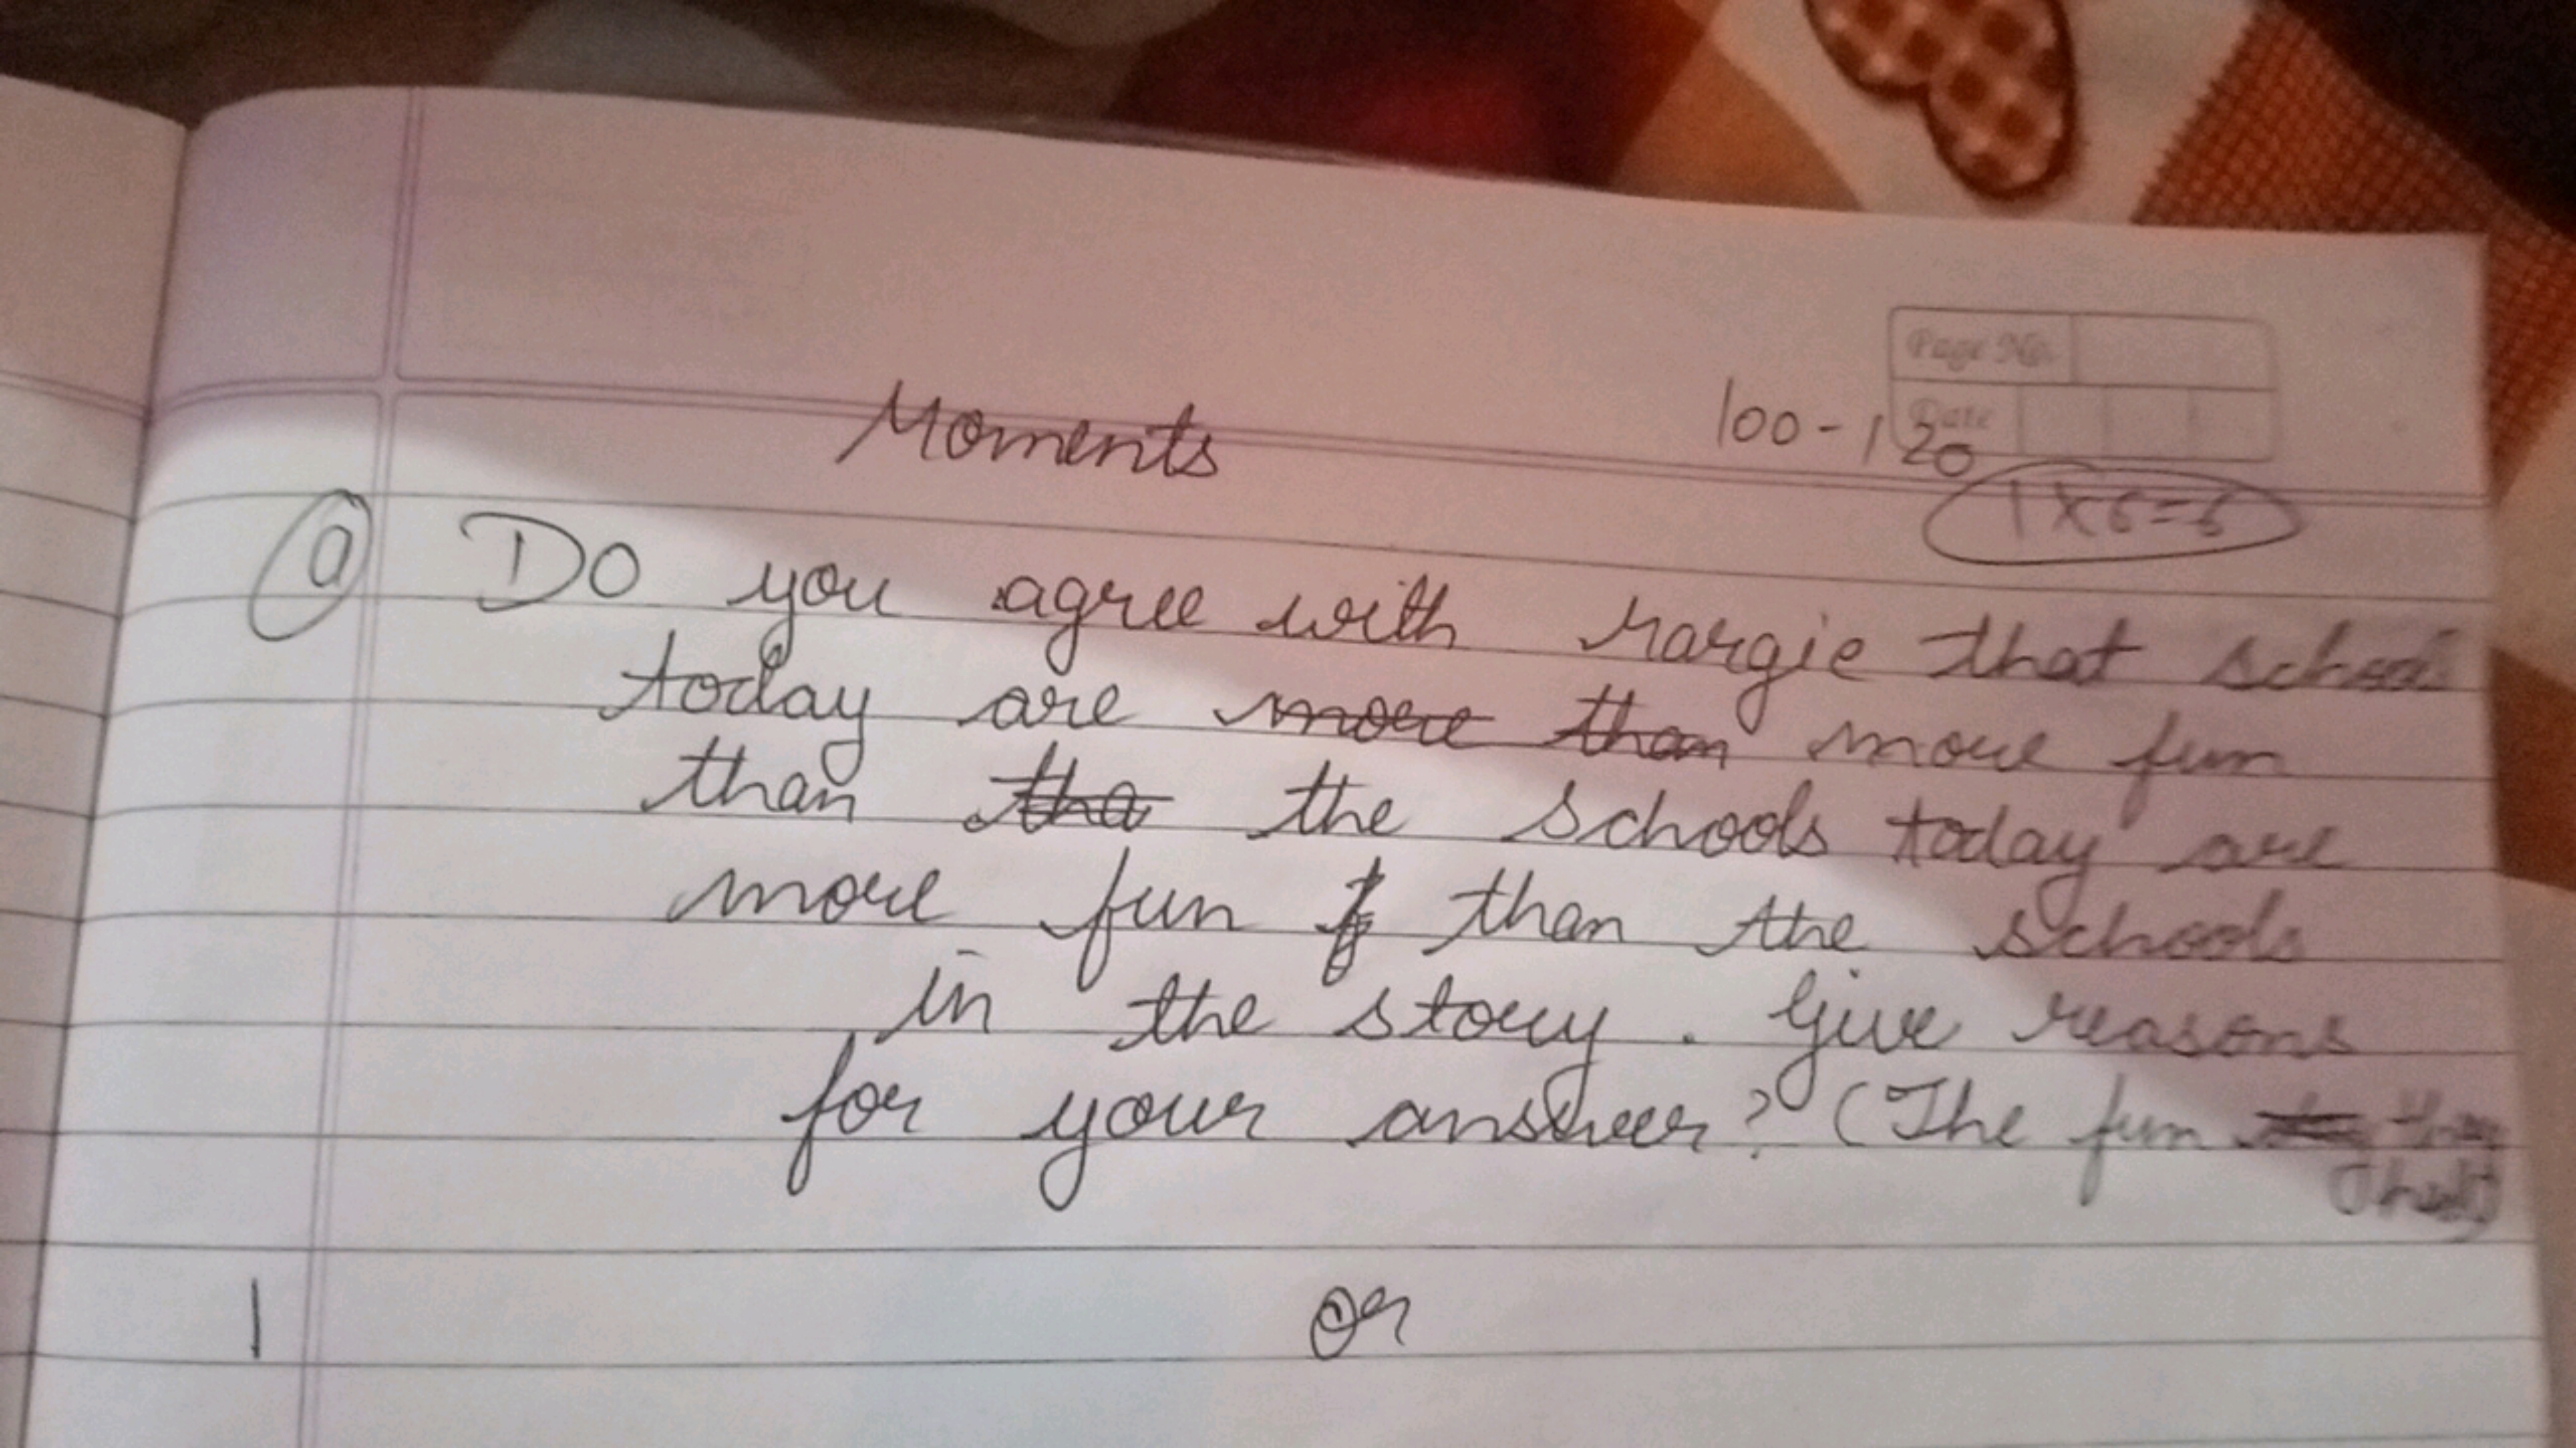 Page No.
Date
Moments 100-120
1x6=6
Q Do you agree with Margie that school
today are more than more fun
than tha the schools today are
more fun than the schools
in the story. Give reasons
for your answer? (The fun they
had)
1 or